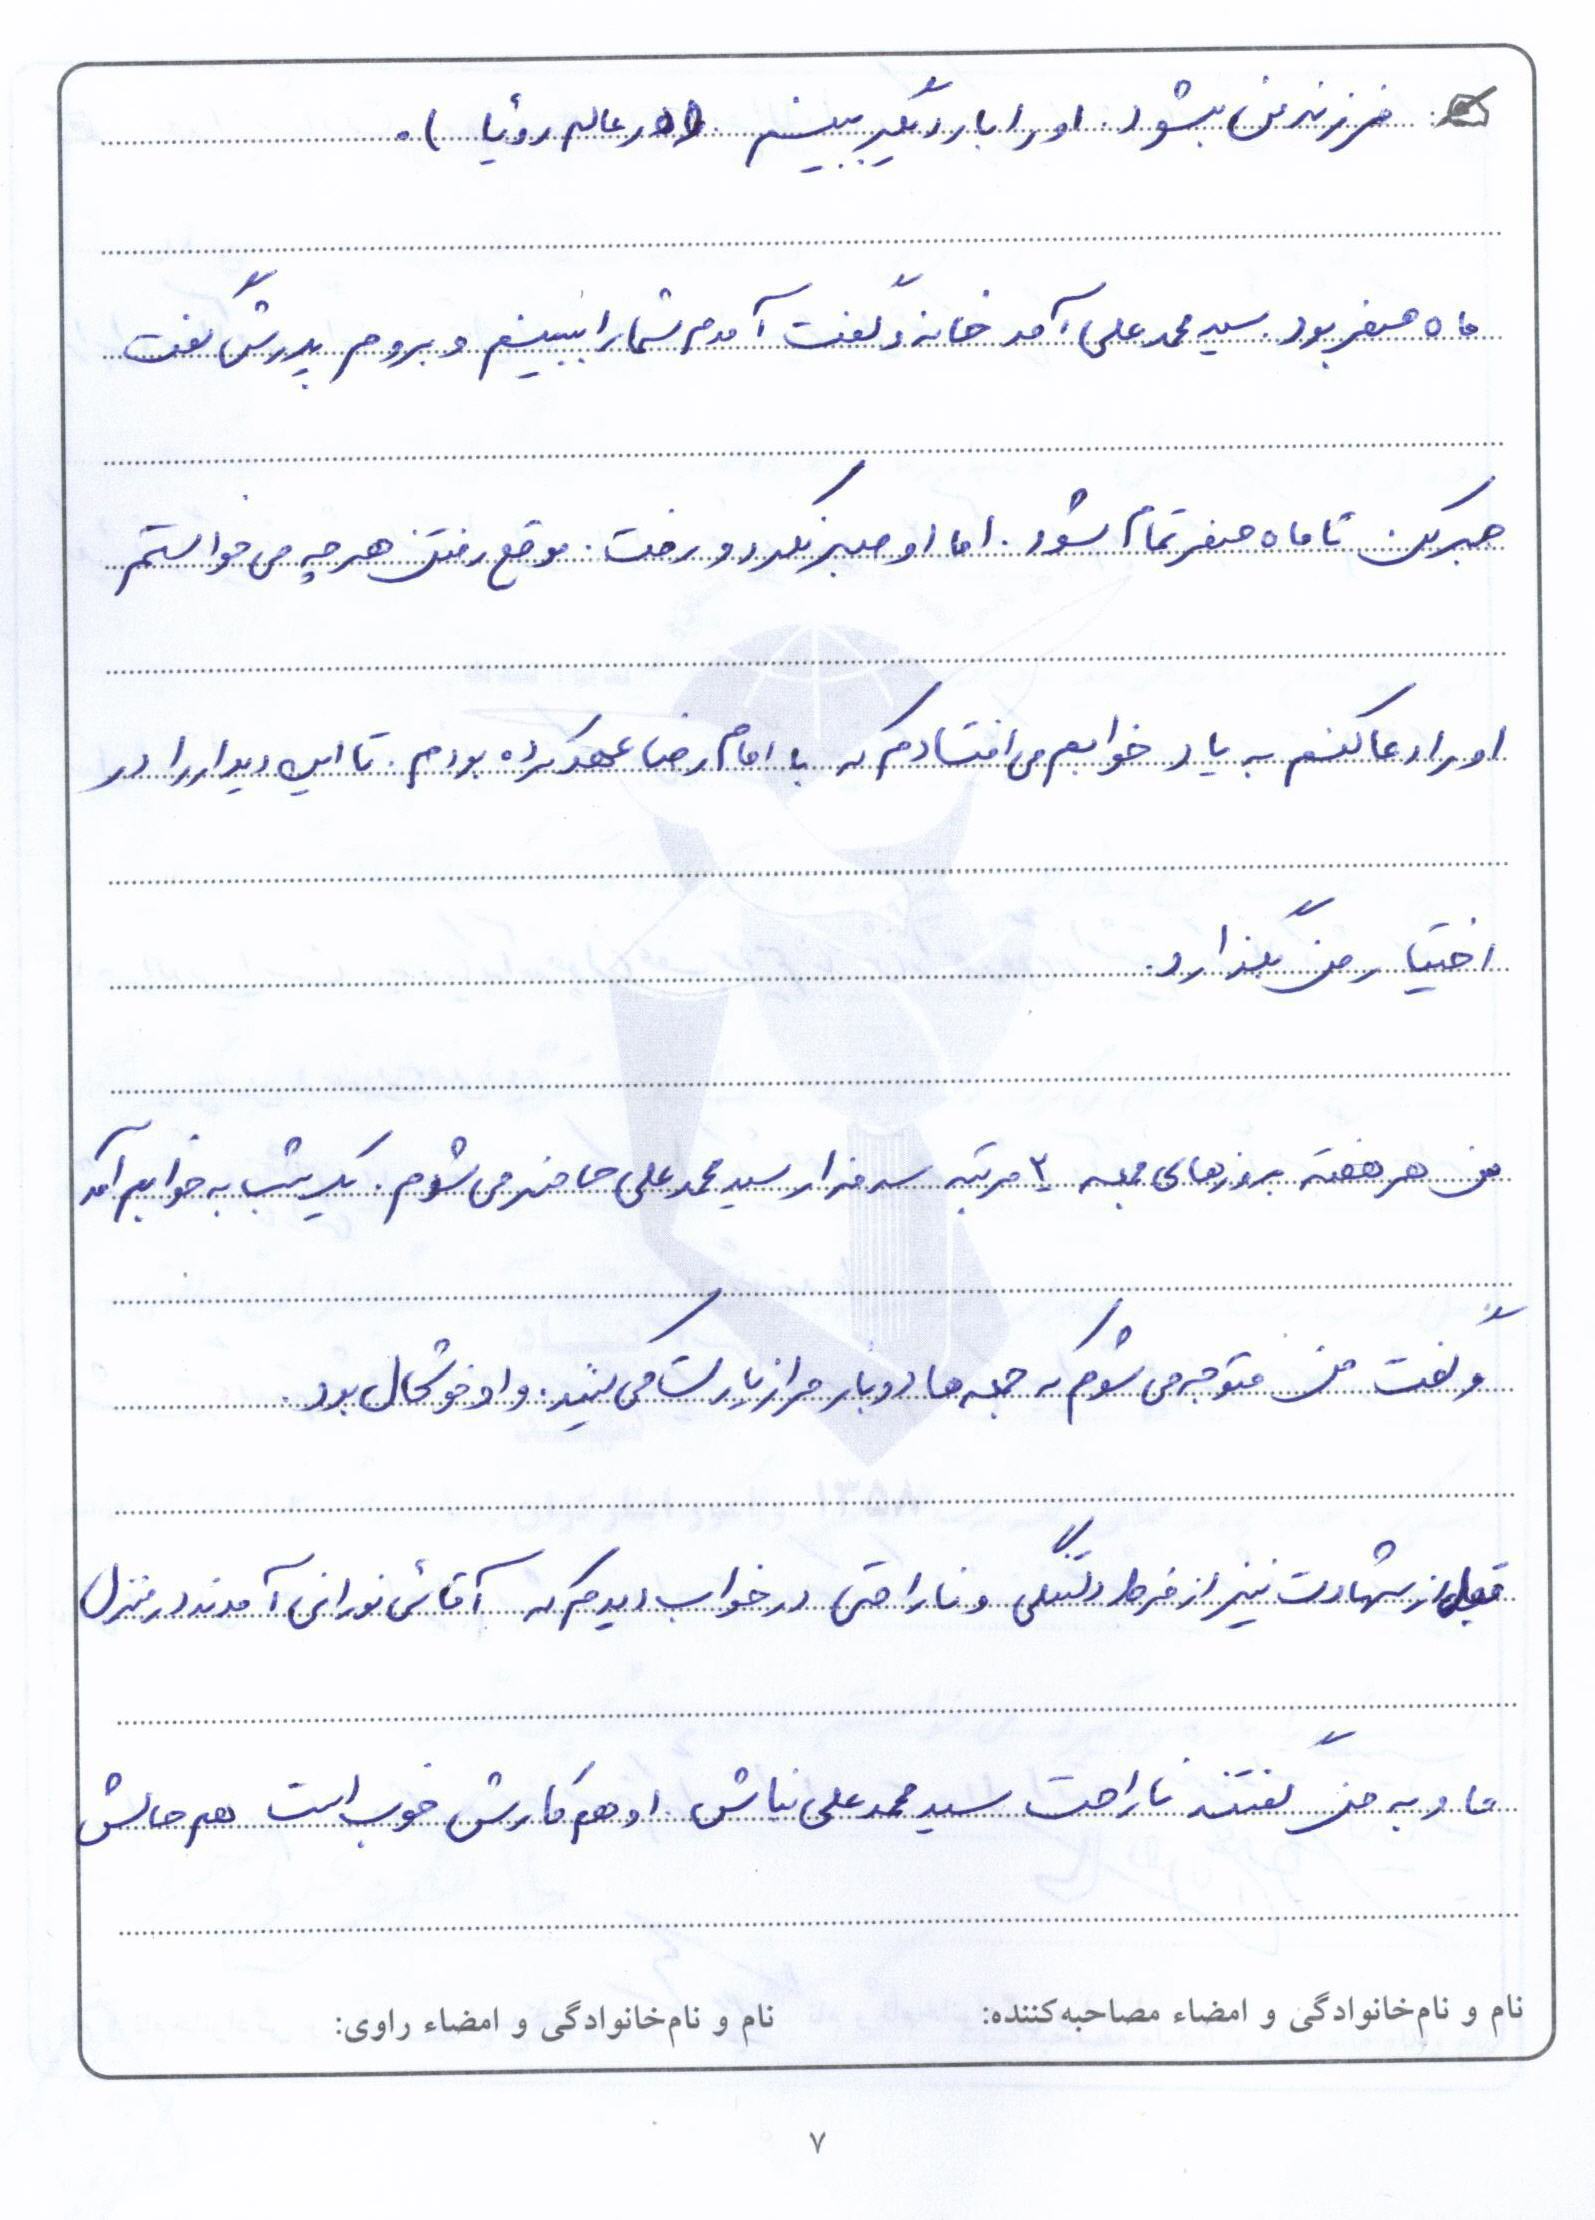 فرزند من بشود. او را بار دیگر ببینم (در عالم رؤیا).
ماه صفر بود. سید محمد علی آمد خانه و گفت آمدم شما را ببینم و بروم پدرش گفت
صبر کن تا ماه صفر تمام شود. اما او صبر نکرد و رفت. موقع رفتن هر چه می خواستم
او را دعا کنم به یاد خوابم می افتادم که با امام رضا عهد کرده بودم. تا این دیدار را در
اختیار من بگذارد.
من هر هفته روزهای جمعه ۲ مرتبه سر مزار سید محمد علی حاضر می شوم. یک شب به خوابم آمد
و گفت من متوجه می شوم که جمعه ها دوبار مرا زیارت می کنید. و او خوشحال بود.
قبل از شهادت نیز از فرط دلتنگی و ناراحتی در خواب دیدم که آقائی نورانی آمدند در منزل
ما و به من گفتند ناراحت سید محمد علی نباش او هم کارش خوب است هم حالش
نام و نام‌خانوادگی و امضاء مصاحبه‌کننده: نام و نام‌خانوادگی و امضاء راوی:
۷